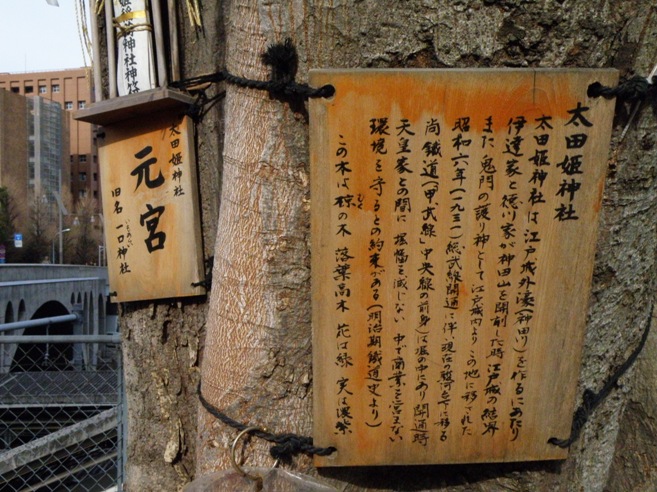 太田姫神社
太田姫神社は江戸城外濠(神田川)を作るにあたり
伊達家と徳川家が神田山を開削した時 江戸城の結界
また鬼門の護り神として江戸城内より この地に移された
昭和六年(一九三一)総武線開通に伴い現在の駿河台下に移る
尚鐵道(「甲武線」中央線の前身)は堀の中にあり 開通時
天皇家との間に 堀幅を減じない 中で商業を営まない
環境を守るとの約束がある(明治期鐵道史より)
この木は椋の木 落葉高木 花は緑 実は濃紫
むく
太田姫神社
元宮
旧名 一口神社
いもあらい